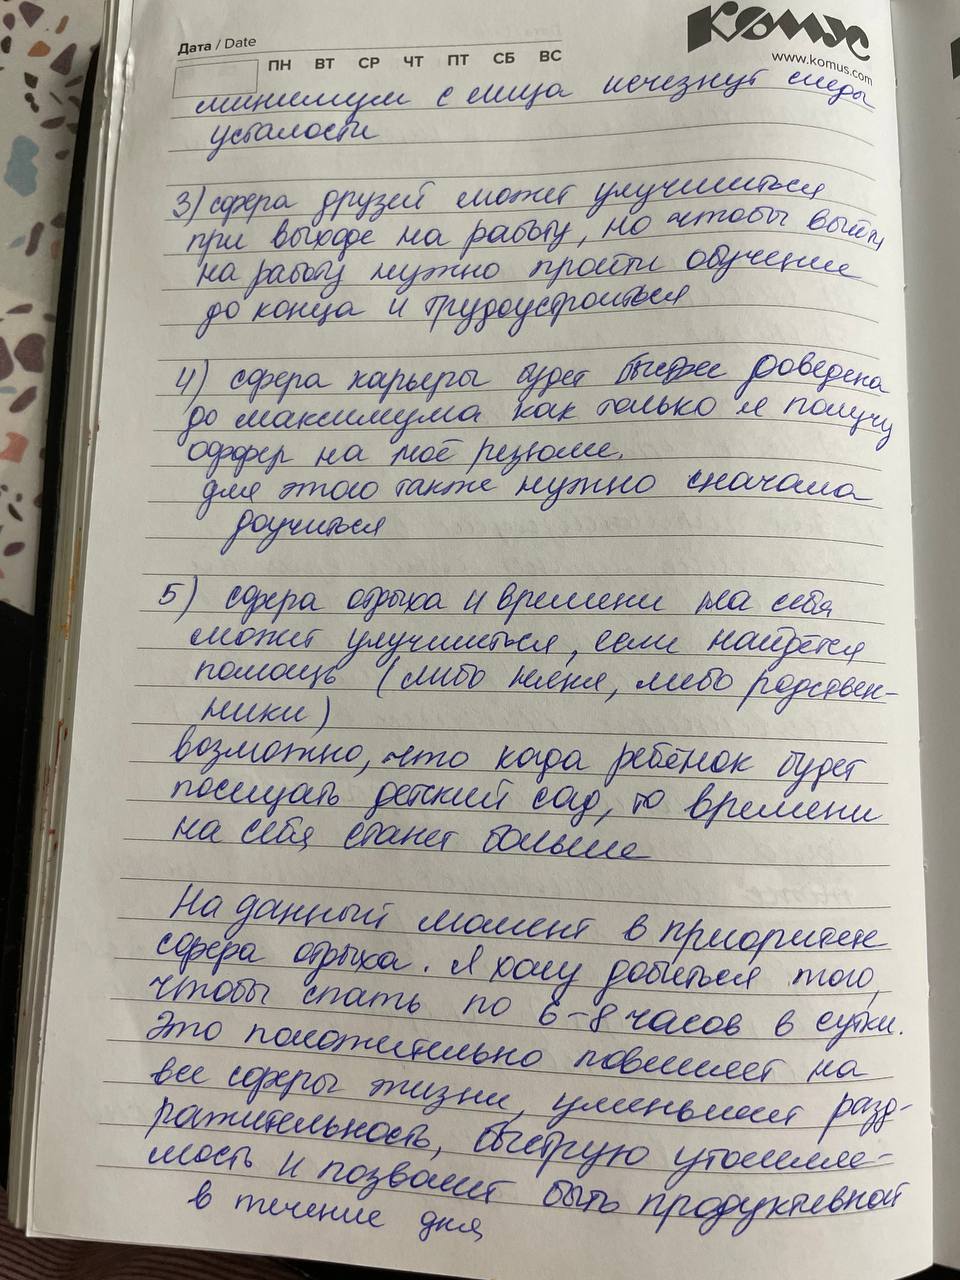 Дата / Date
ПН ВТ СР ЧТ ПТ СБ ВС
Комус
www.komus.com
минимум с лица исчезнут следы
усталости
3) сфера друзей может улучшиться
при выходе на работу, но чтобы выйти
на работу нужно пройти обучение
до конца и трудоустроиться
4) сфера карьеры будет доведена
до максимума как только я получу
оффер на моё резюме.
для этого также нужно сначала
доучиться
5) сфера отдыха и времени на себя
может улучшиться, если найдётся
помощь (либо няня, либо родствен-
ники)
возможно, что когда ребёнок будет
посещать детский сад, то времени
на себя станет больше
На данный момент в приоритете
сфера отдыха. Я хочу добиться того,
чтобы спать по 6-8 часов в сутки.
Это положительно повлияет на
все сферы жизни, уменьшит разд-
ражительность, быструю утомляе-
мость и позволит быть продуктивной
в течение дня